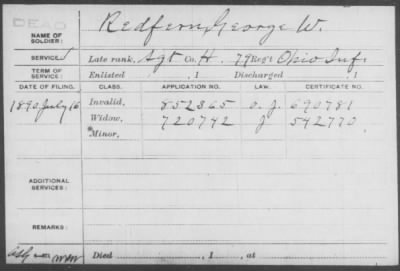 DEAD
NAME OF SOLDIER: Redfern, George W.
SERVICE: Late rank, Sgt Co. H. 79 Reg't Ohio Inf.
TERM OF SERVICE: Enlisted , 1 Discharged , 1
DATE OF FILING. CLASS. APPLICATION NO. LAW. CERTIFICATE NO.
1890 July 16 Invalid, 852365 690781
Widow, 720742 J 542770
Minor,
ADDITIONAL SERVICES:
REMARKS:
Died , 1 , at